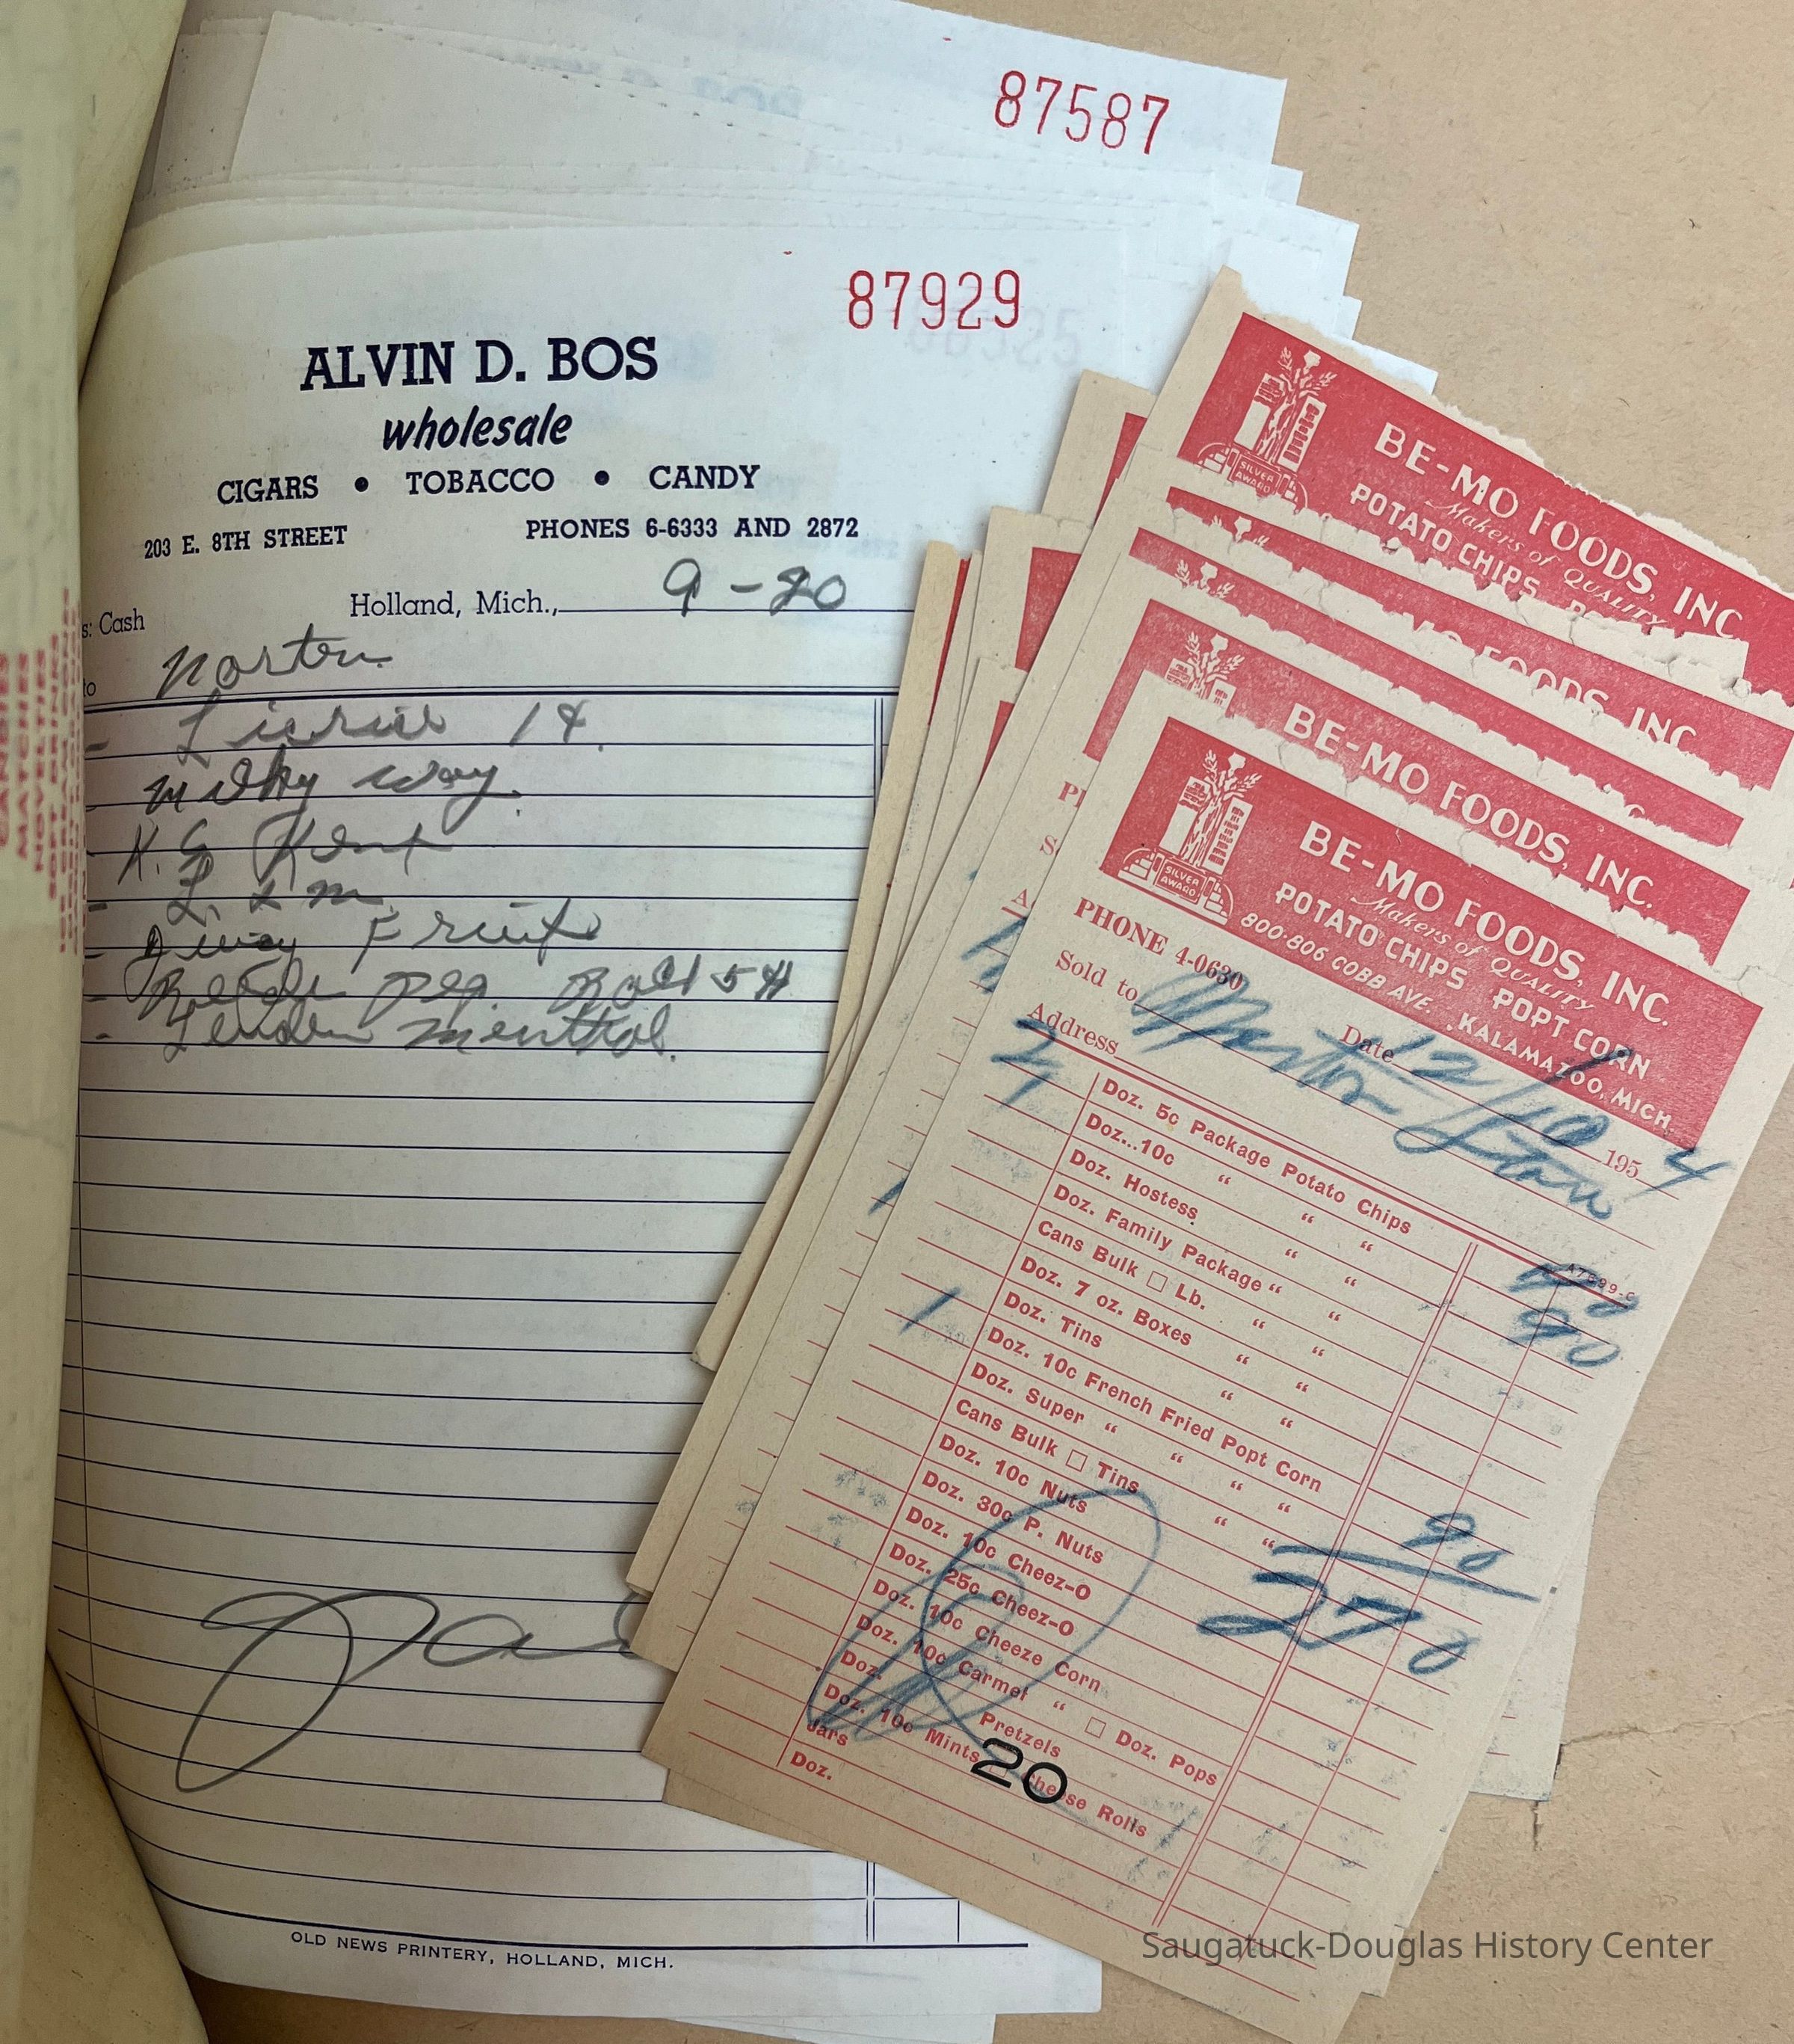 87587
87929
ALVIN D. BOS
wholesale
CIGARS • TOBACCO • CANDY
203 E. 8TH STREET PHONES 6-6333 AND 2872
Holland, Mich., 9-20
s: Cash
to Norton
Milky Way.
K.G Kent
L. & M
Juicy Fruit
Menthol.
OLD NEWS PRINTERY, HOLLAND, MICH.
BE-MO FOODS, INC
Makers of QUALITY
POTATO CHIPS
SILVER AWARD
MO FOODS, INC.
BE-MO FOODS, INC.
BE-MO FOODS, INC.
Makers of QUALITY
POTATO CHIPS POPT CORN
800-806 COBB AVE., KALAMAZOO, MICH.
SILVER AWARD
PHONE 4-0630
Date 12/10 1954
Sold to Norton
Address
Doz. 5c Package Potato Chips
Doz...10c " " "
Doz. Hostess " "
Doz. Family Package " "
Cans Bulk □ Lb. " "
Doz. 7 oz. Boxes " "
Doz. Tins " "
1 Doz. 10c French Fried Popt Corn 90
Doz. Super " " " "
Cans Bulk □ Tins " "
Doz. 10c Nuts
Doz. 30c P. Nuts
Doz. 10c Cheez-O
Doz. 25c Cheez-O
Doz. 10c Cheeze Corn
Doz. 10c Carmel " □ Doz. Pops
Doz. Pretzels
Doz. 10c Mints Cheese Rolls
Jars
Doz.
270
20
Saugatuck-Douglas History Center